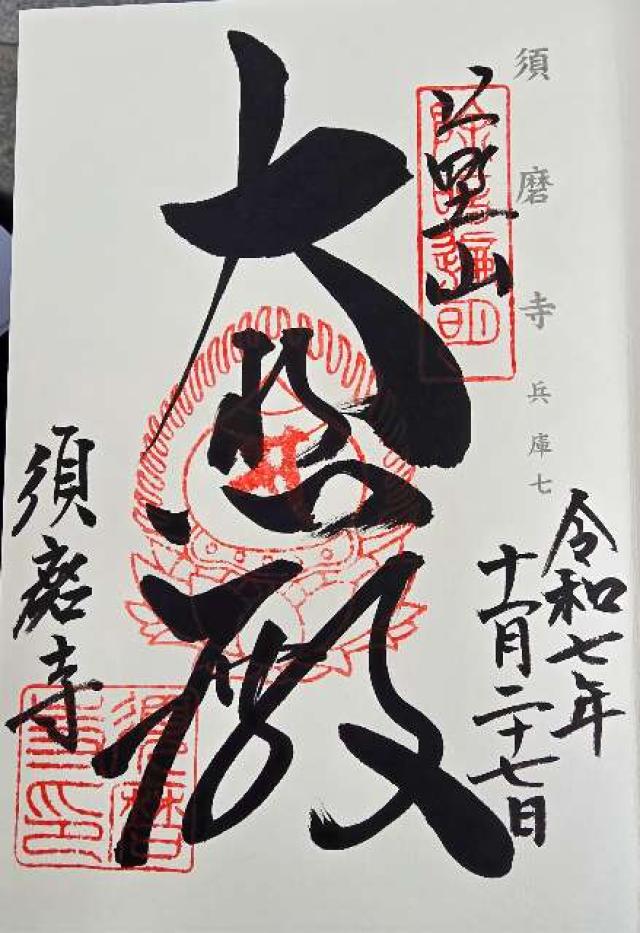 須磨寺 兵庫七
上野山
令和七年
十一月二十七日
大悲殿
須磨寺